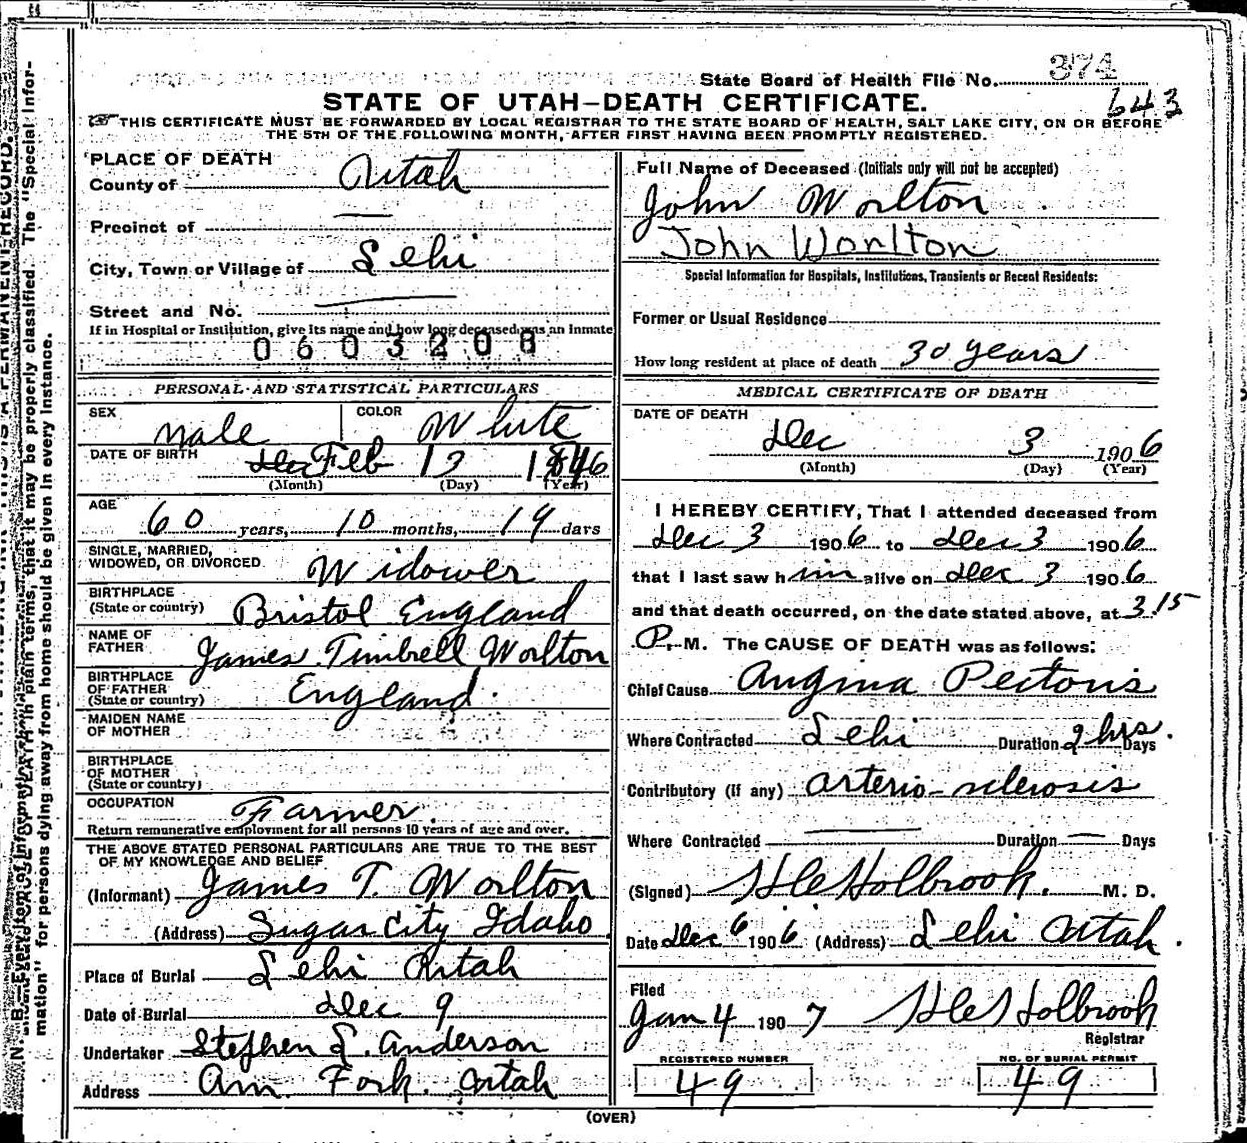 State Board of Health File No. 374
643
STATE OF UTAH—DEATH CERTIFICATE.
THIS CERTIFICATE MUST BE FORWARDED BY LOCAL REGISTRAR TO THE STATE BOARD OF HEALTH, SALT LAKE CITY, ON OR BEFORE
THE 5TH OF THE FOLLOWING MONTH, AFTER FIRST HAVING BEEN PROMPTLY REGISTERED.
PLACE OF DEATH
County of Utah
Precinct of —
City, Town or Village of Lehi
Street and No. —
If in Hospital or Institution, give its name and how long deceased was an inmate
0603208
PERSONAL AND STATISTICAL PARTICULARS
SEX Male COLOR White
DATE OF BIRTH Dec Feb 13 1846
(Month) (Day) (Year)
AGE
60 years, 10 months, 19 days
SINGLE, MARRIED,
WIDOWED, OR DIVORCED Widower
BIRTHPLACE
(State or country) Bristol England
NAME OF
FATHER James Timbrell Worlton
BIRTHPLACE
OF FATHER
(State or country) England.
MAIDEN NAME
OF MOTHER
BIRTHPLACE
OF MOTHER
(State or country)
OCCUPATION Farmer.
Return remunerative employment for all persons 10 years of age and over.
THE ABOVE STATED PERSONAL PARTICULARS ARE TRUE TO THE BEST
OF MY KNOWLEDGE AND BELIEF
(Informant) James T. Worlton
(Address) Sugar City Idaho.
Place of Burial Lehi Utah
Date of Burial Dec 9
Undertaker Stephen L. Anderson
Address Am. Fork. Utah
Full Name of Deceased (Initials only will not be accepted)
John Worlton
John Worlton
Special Information for Hospitals, Institutions, Transients or Recent Residents:
Former or Usual Residence
How long resident at place of death 30 years
MEDICAL CERTIFICATE OF DEATH
DATE OF DEATH
Dec 3 1906
(Month) (Day) (Year)
I HEREBY CERTIFY, That I attended deceased from
Dec 3 1906 to Dec 3 1906
that I last saw him alive on Dec 3 1906
and that death occurred, on the date stated above, at 3.15
P. M. The CAUSE OF DEATH was as follows:
Chief Cause Angina Pectoris
Where Contracted Lehi Duration 2 hrs. Days
Contributory (if any) Arterio-sclerosis
Where Contracted — Duration — Days
(Signed) Holbrook. M. D.
Date Dec 6 1906. (Address) Lehi Utah.
Filed
Jan 4 1907 Holbrook
Registrar
REGISTERED NUMBER
49
NO. OF BURIAL PERMIT
49
(OVER)
mation" for persons dying away from home should be given in every instance.
that it may be properly classified. The "Special Infor-